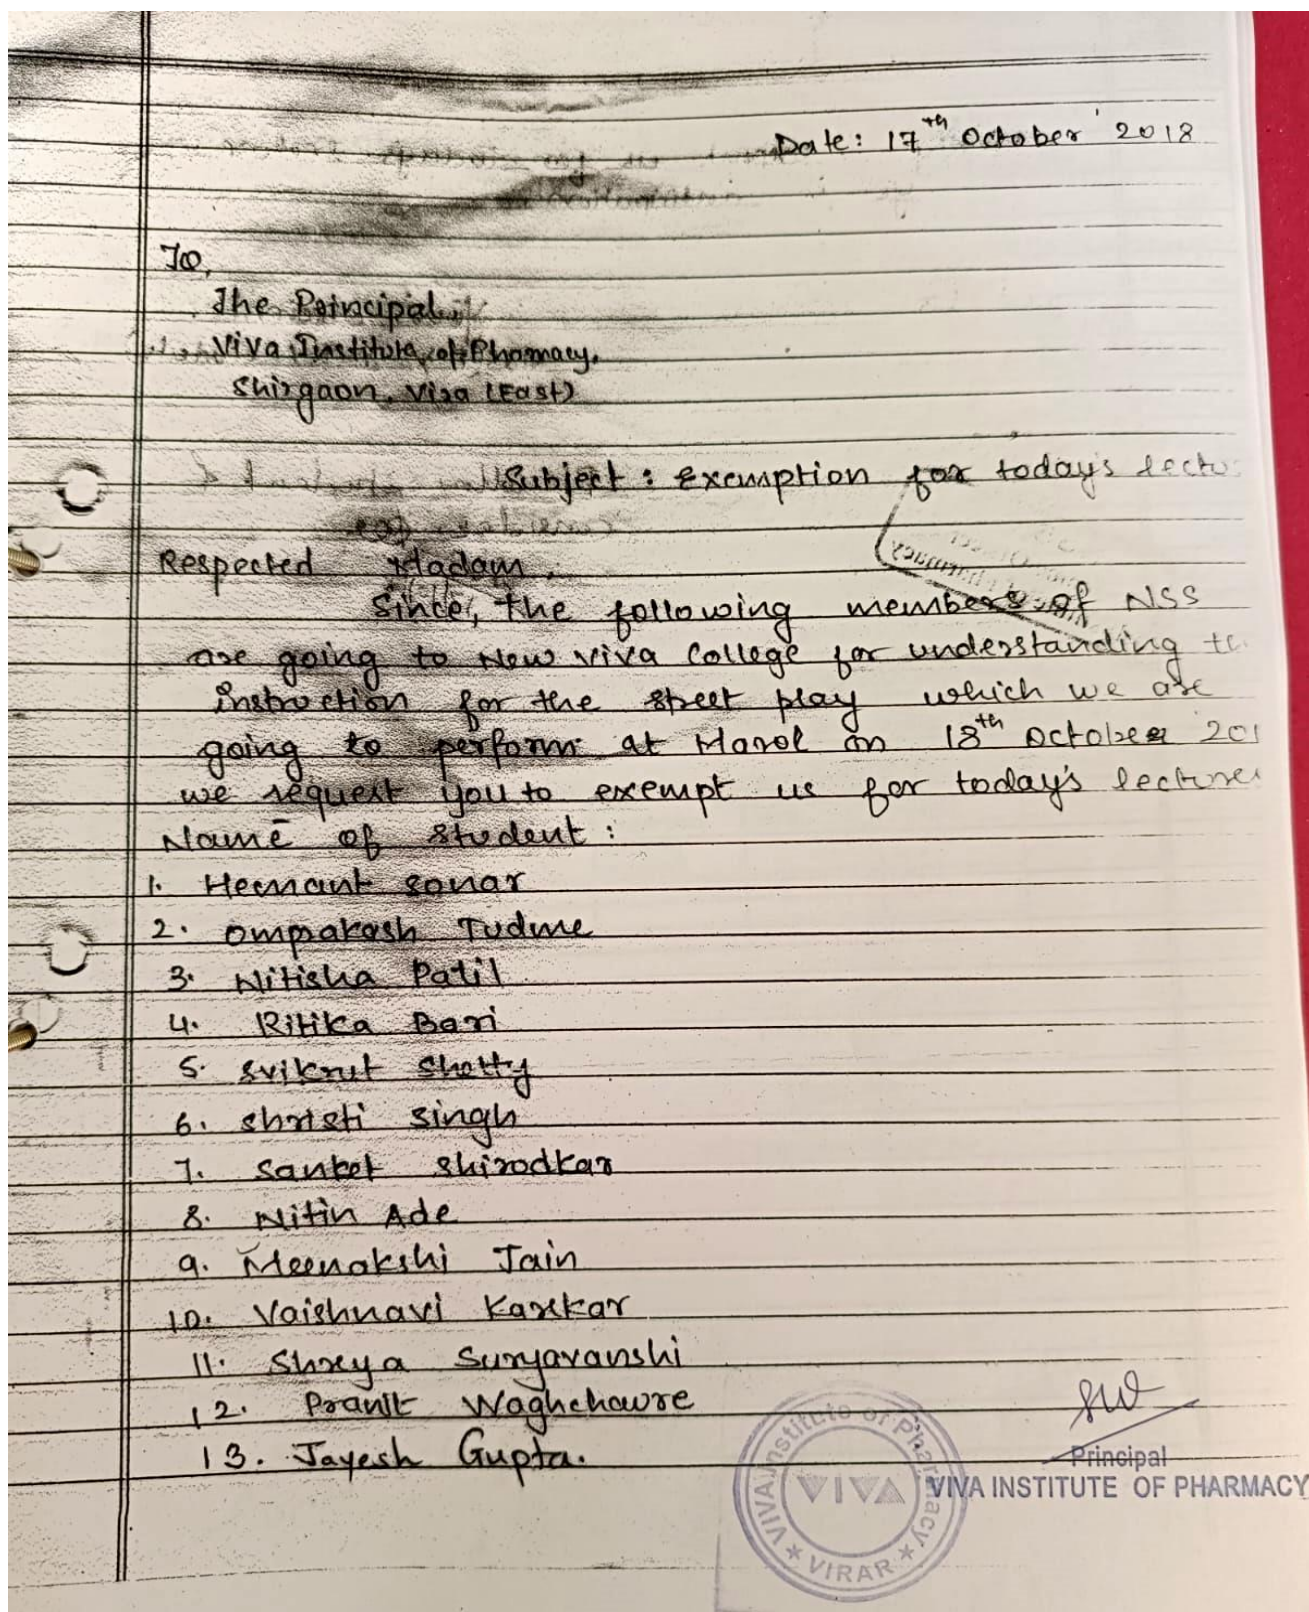 Date: 17th October 2018
To,
The Principal
Viva Institute of Phamacy.
Shirgaon, Vira (East)
Subject : Exemption for today's lectu
Respected Madam,
Since, the following members of NSS
are going to New Viva College for understanding
instruction for the street play which we are
going to perform at Marol on 18th October 201
we request you to exempt us for today's lecture
Name of student :
1. Hemant Sonar
2. Omprakash Tudme
3. Nitisha Patil
4. Ritika Bari
5. Svikrut Shetty
6. Shristi Singh
7. Sanket Shirodkar
8. Nitin Ade
9. Meenakshi Jain
10. Vaishnavi Karekar
11. Shreya Suryavanshi
12. Pranit Waghchawre
13. Jayesh Gupta.
Principal
VIVA INSTITUTE OF PHARMACY
VIVA Institute of Pharmacy
VIVA
★ VIRAR ★